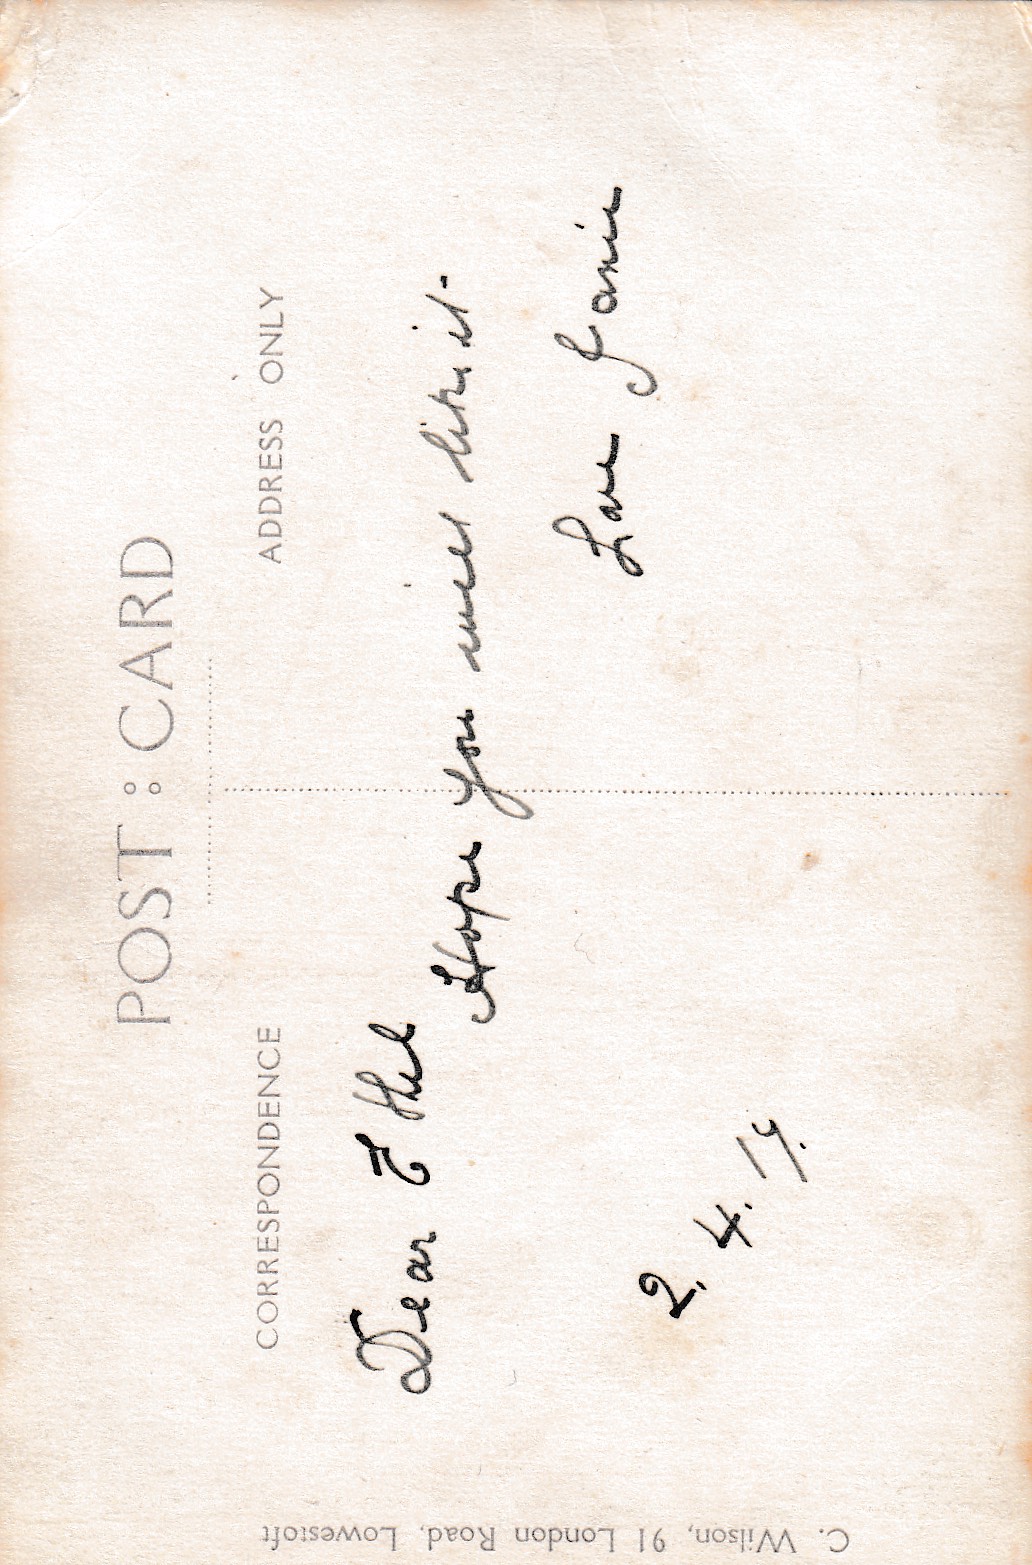 POST : CARD
CORRESPONDENCE
ADDRESS ONLY
Dear Ethel
Hope you will like it.
Love Janie
2. 4. 17.
C. Wilson, 91 London Road, Lowestoft